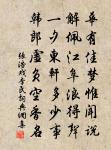 華胥佳夢惟聞說
解佩江皋浪得聲
一夕東軒多少事
韓郎虛負竊香名
張浩戲李氏詞典網書